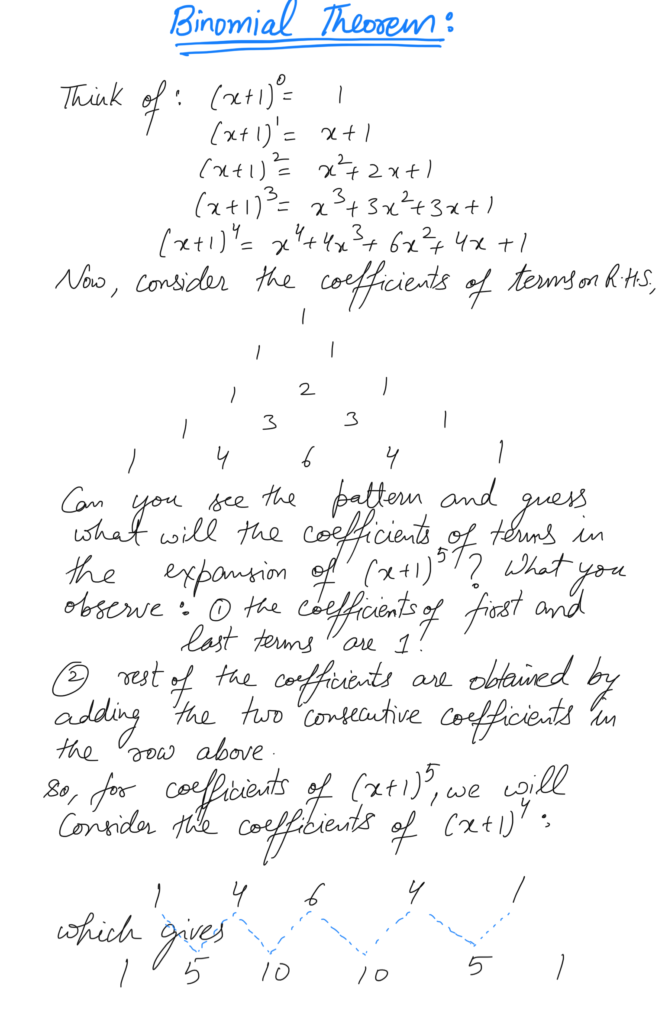 Binomial Theorem:
Think of: (x+1)⁰ = 1
(x+1)¹ = x+1
(x+1)² = x²+2x+1
(x+1)³ = x³+3x²+3x+1
(x+1)⁴ = x⁴+4x³+6x²+4x+1
Now, consider the coefficients of terms on R.H.S.,
1
1 1
1 2 1
1 3 3 1
1 4 6 4 1
Can you see the pattern and guess
what will the coefficients of terms in
the expansion of (x+1)⁵? What you
observe: ① the coefficients of first and
last terms are 1!
② rest of the coefficients are obtained by
adding the two consecutive coefficients in
the row above.
So, for coefficients of (x+1)⁵, we will
Consider the coefficients of (x+1)⁴:
1 4 6 4 1
which gives
1 5 10 10 5 1